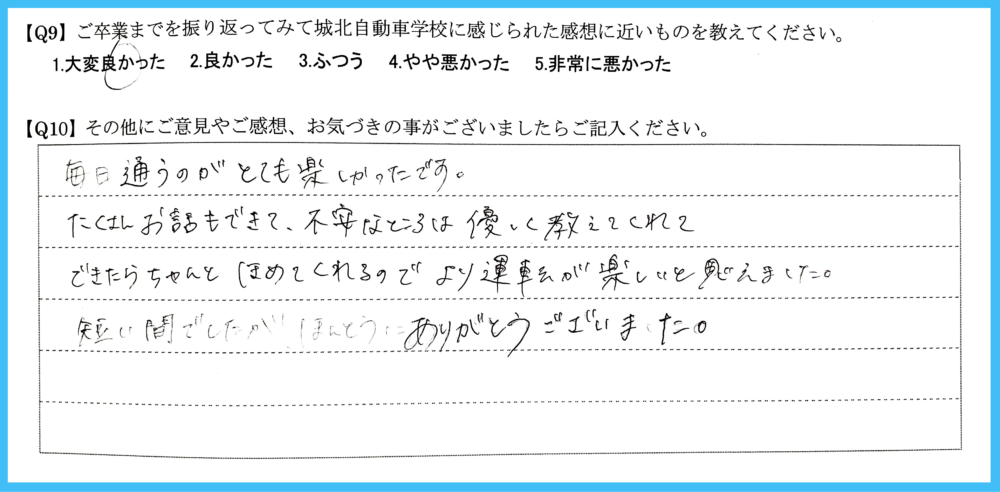 【Q9】ご卒業までを振り返ってみて城北自動車学校に感じられた感想に近いものを教えてください。
1.大変良かった 2.良かった 3.ふつう 4.やや悪かった 5.非常に悪かった
【Q10】その他にご意見やご感想、お気づきの事がございましたらご記入ください。
毎日通うのがとても楽しかったです。
たくさんお話もできて、不安なところは優しく教えてくれて
できたらちゃんとほめてくれるのでより運転が楽しいと思えました。
短い間でしたがほんとうにありがとうございました。